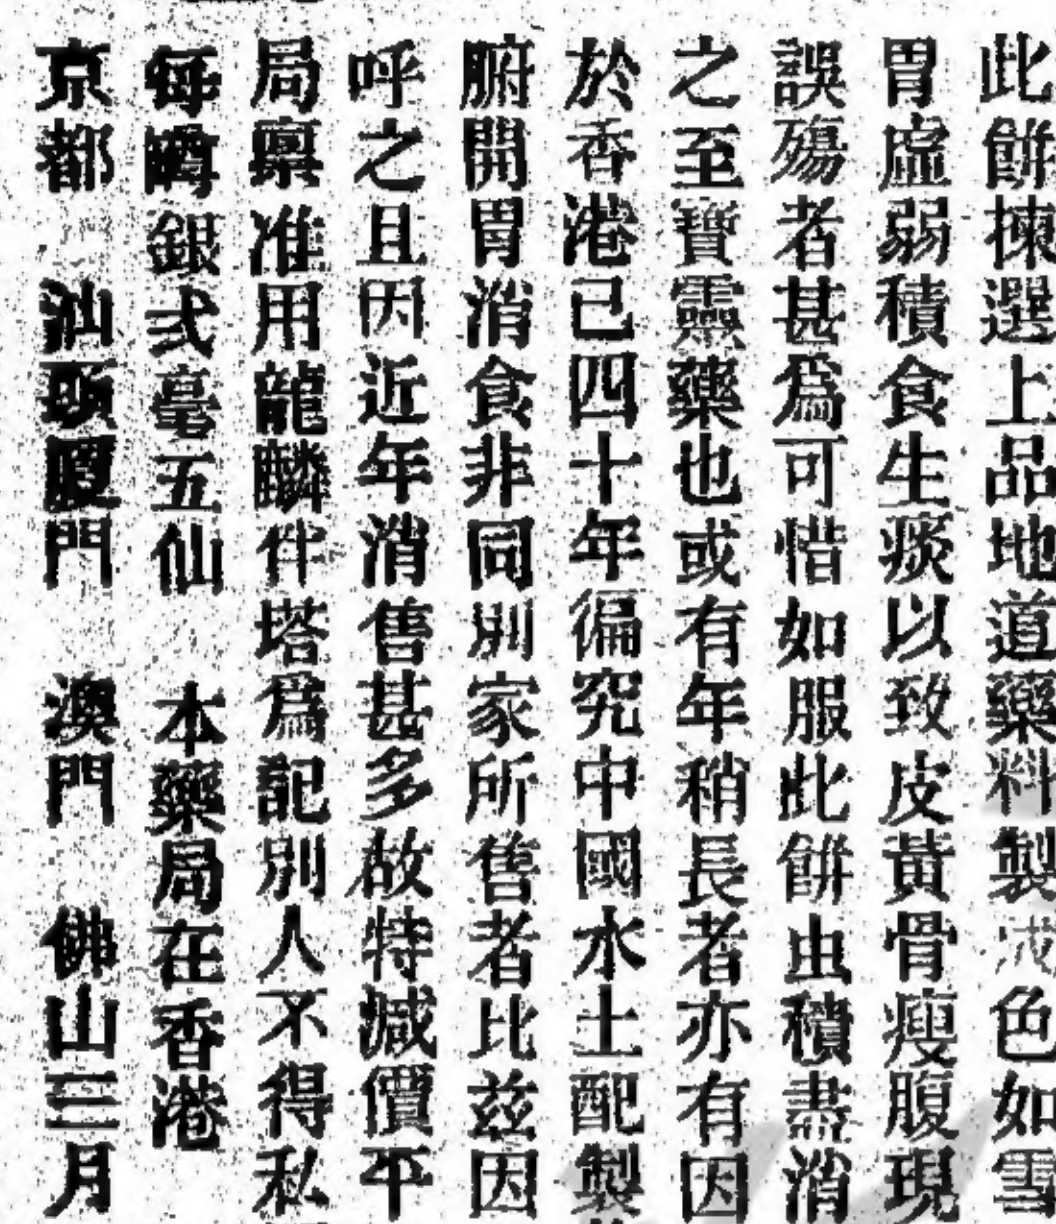 此餅揀選上品地道藥料製成色如雪
胃虛弱積食生痰以致皮黃骨瘦腹現
誤殤者甚為可惜如服此餅虫積盡消
之至寶靈藥也或有年稍長者亦有因
於香港已四十年徧究中國水土配製
腑開胃消食非同別家所售者比茲因
呼之且因近年消售甚多故特減價平
局稟准用龍麟伴塔為記別人不得私
每罇銀弍毫五仙 本藥局在香港
京都 汕頭厦門 澳門 佛山